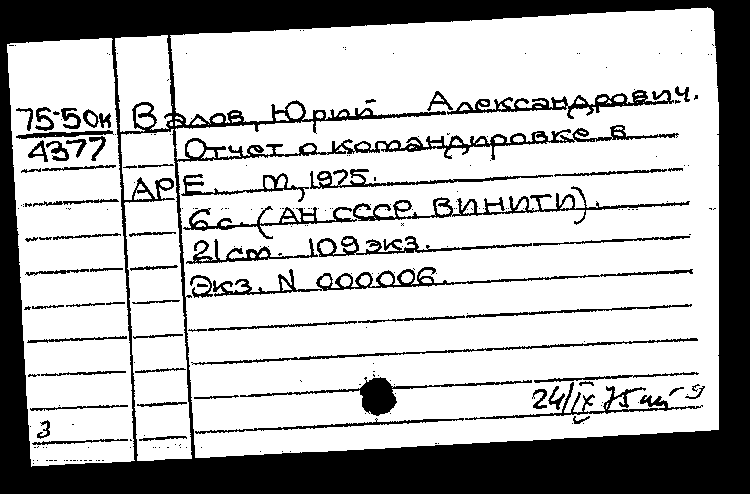 75-50к Валов, Юрий Александрович.
4377 Отчет о командировке в
АРЕ. М., 1975.
6 с. (АН СССР. ВИНИТИ).
21 см. 109 экз.
Экз. N 000006.
24/IX 75
3